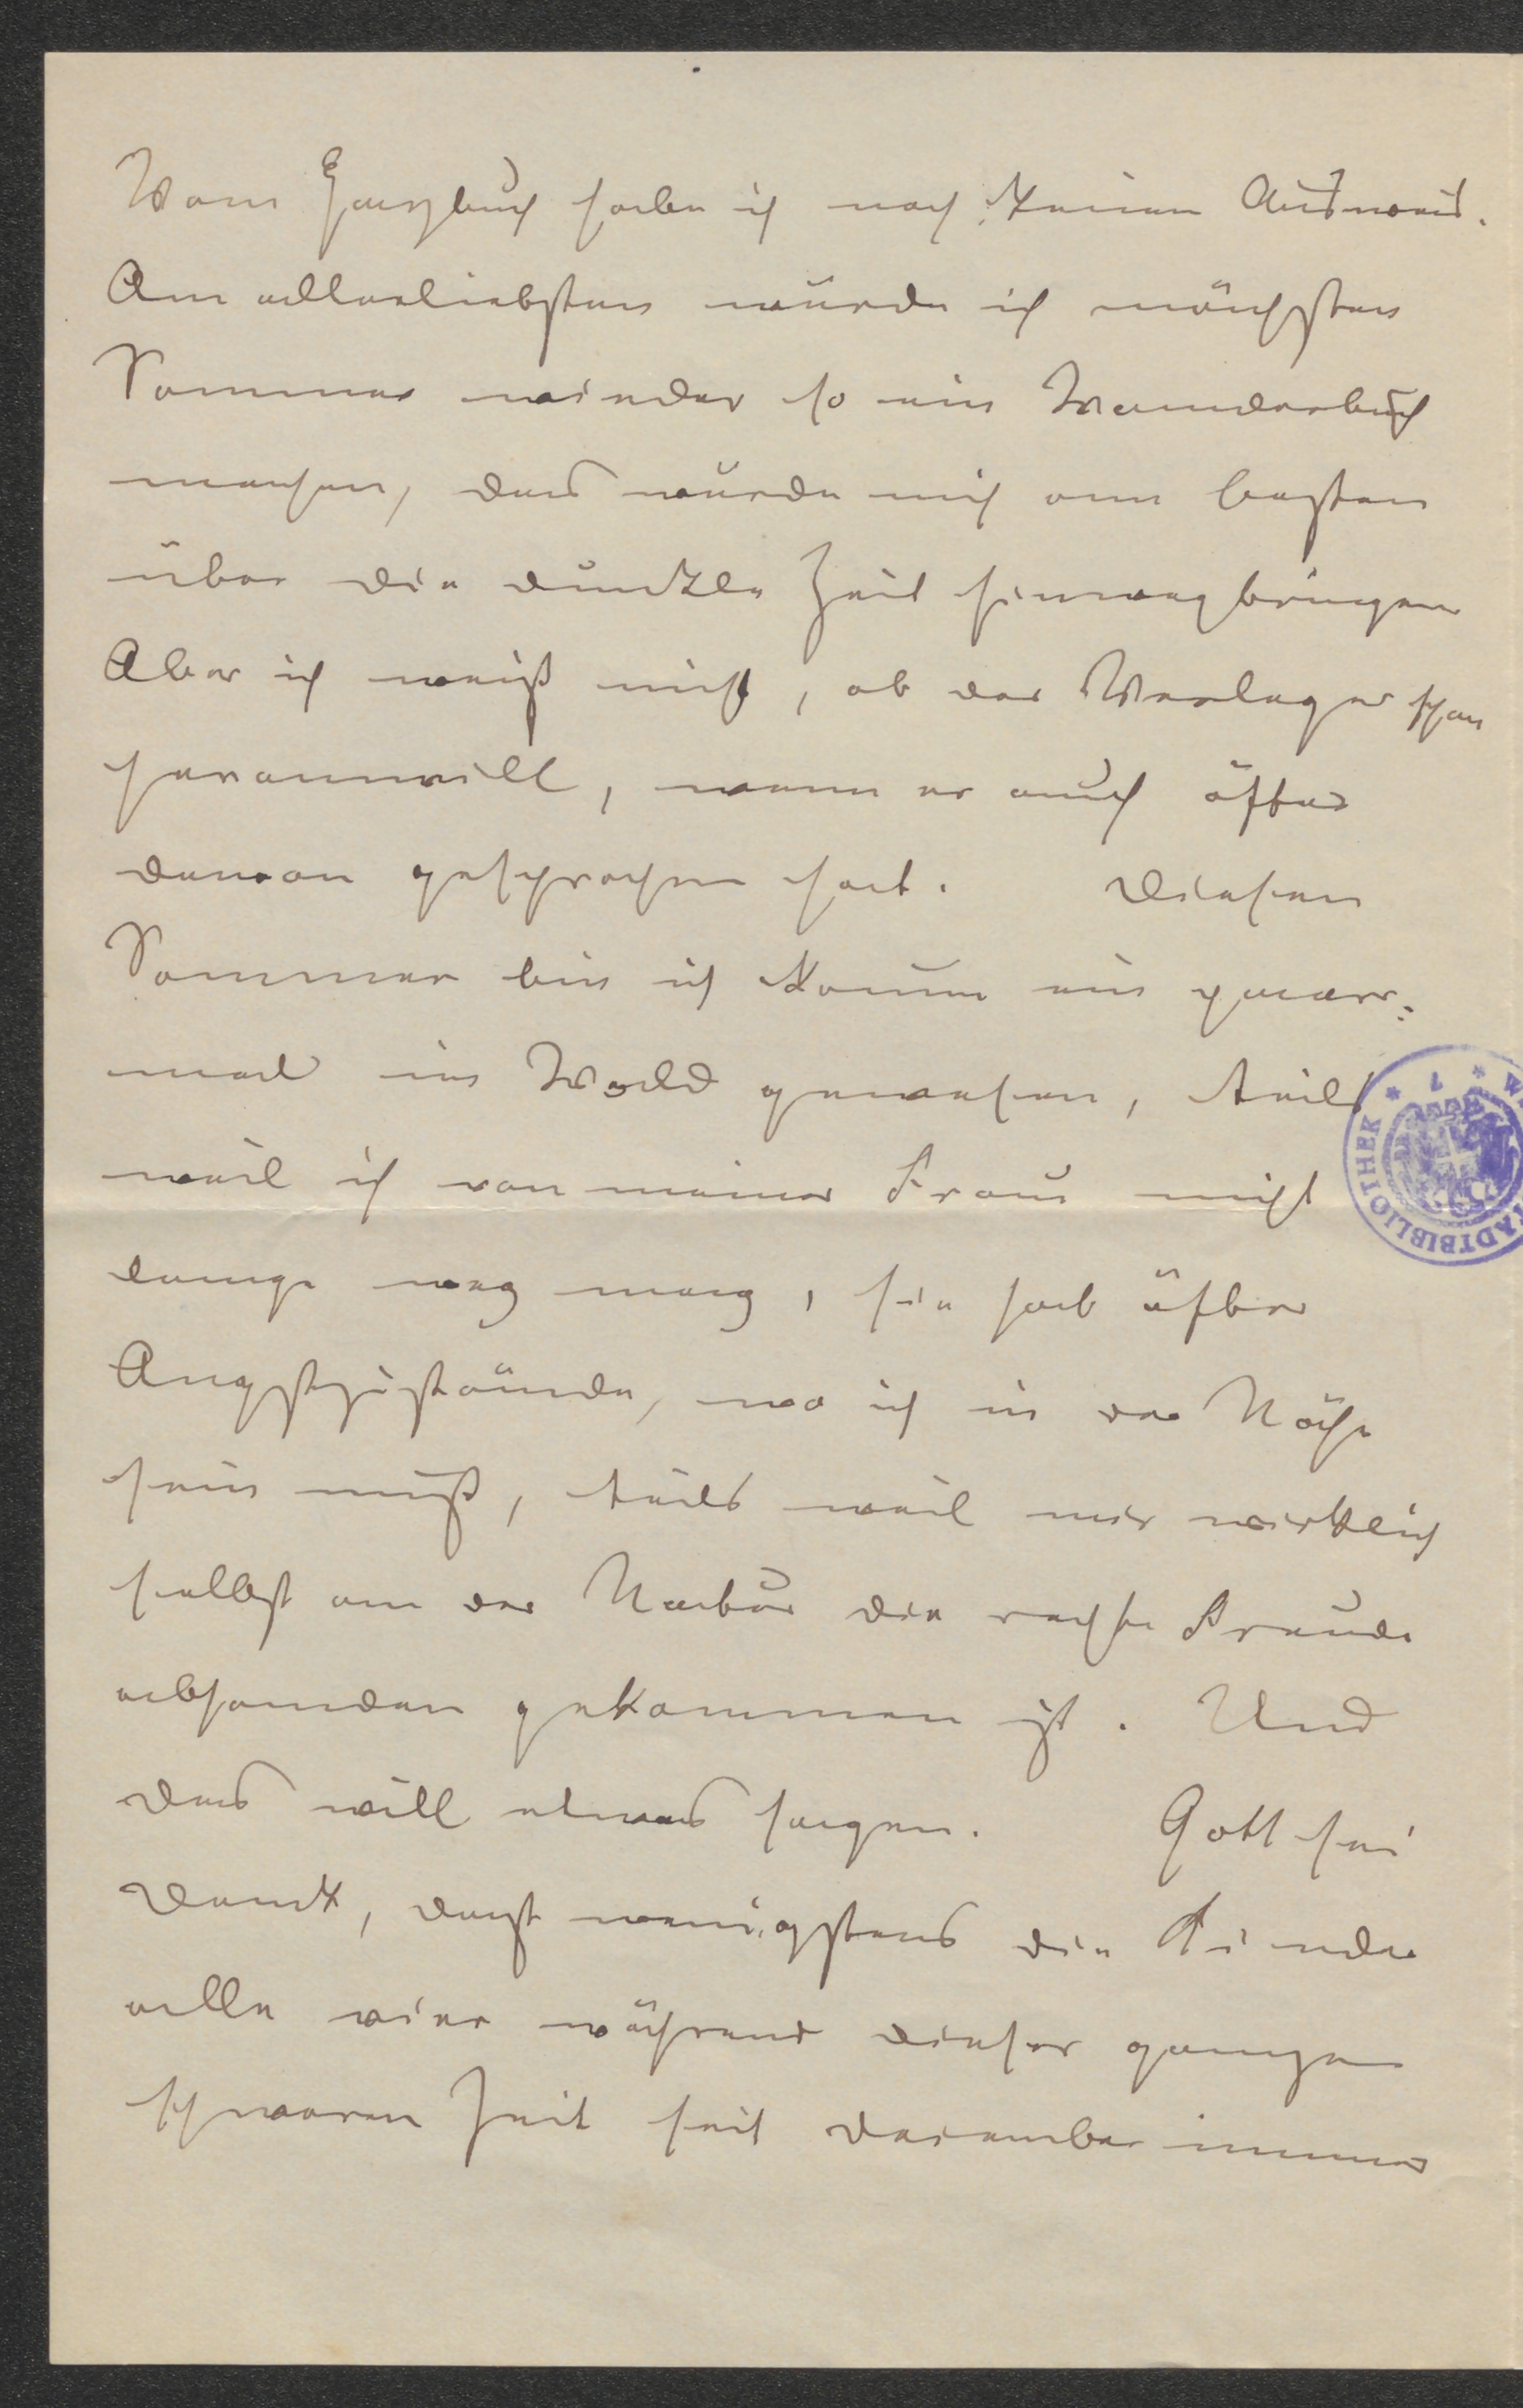 Vom Harzbuch habe ich noch keinen Ausweis.
Am allerliebsten würde ich nächsten
Sommer wieder so ein Wanderbuch
machen, das würde mich am besten
über die dunkle Zeit hinwegbringen
Aber ich weiß nicht, ob der Verleger schon
heranwill, wenn er auch öfter
davon gesprochen hat. Diesen
Sommer bin ich kaum ein paar-
mal im Wald gewesen, teils
weil ich von meiner Frau nicht
lange weg mag, sie hat öfter
Angstzustände, wo ich in der Nähe
sein muß, teils weil mir wirklich
selbst an der Natur die rechte Freude
abhanden gekommen ist. Und
das will etwas sagen. Gott sei
Dank, daß wenigstens die Kinder
alle vier während dieser ganzen
schweren Zeit seit Dezember immer
STADTBIBLIOTHEK